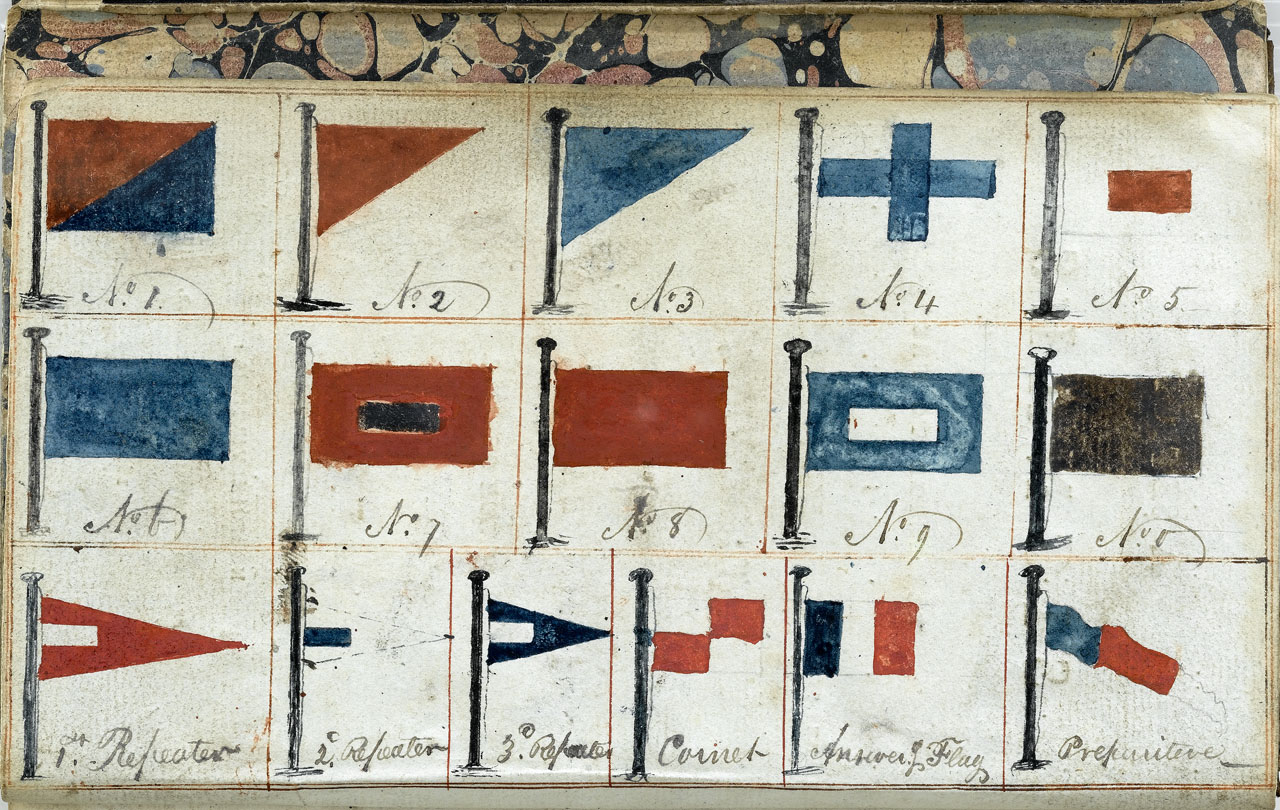 No. 1.
No. 2
No. 3
No. 4
No. 5
No. 6
No. 7
No. 8
No. 9
No. 0
1st. Repeater
2d. Repeater
3d. Repeater
Cornet
Answerg. Flag
Preparitive